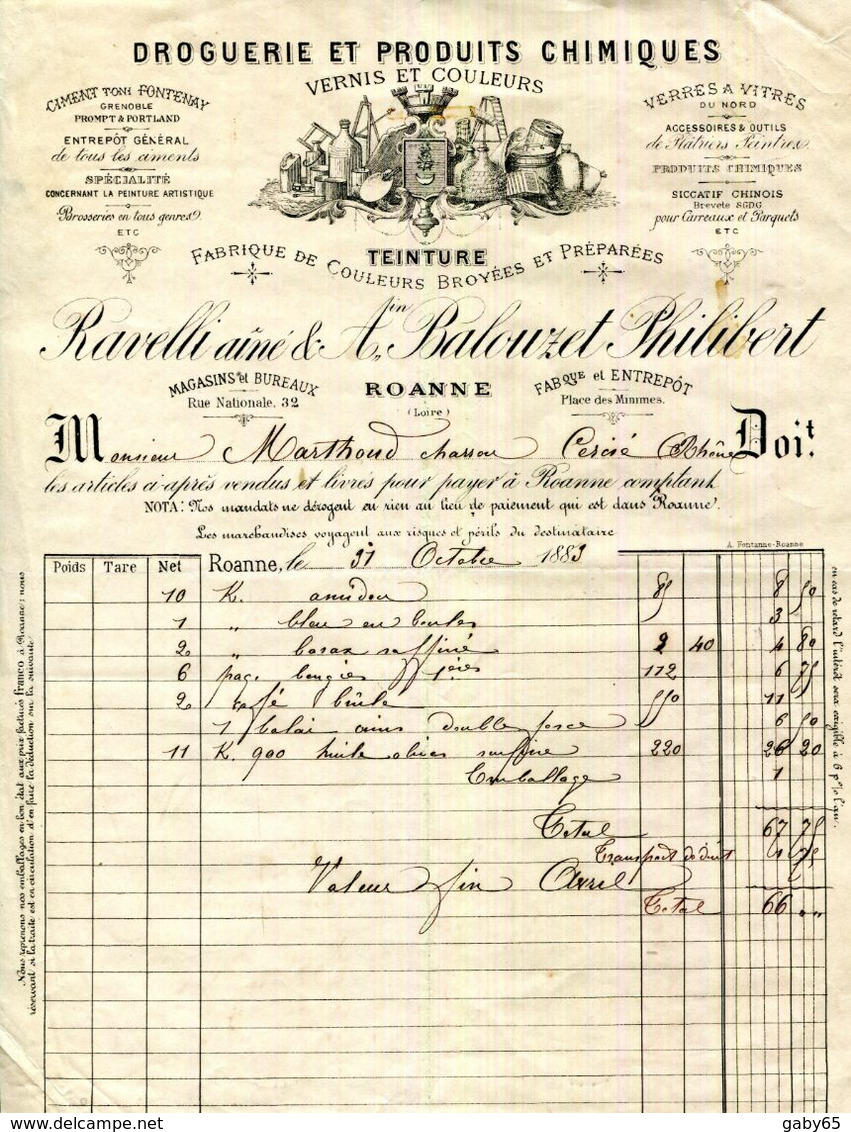 DROGUERIE ET PRODUITS CHIMIQUES
VERNIS ET COULEURS
CIMENT TONI FONTENAY
GRENOBLE
PROMPT & PORTLAND
ENTREPÔT GÉNÉRAL
de tous les ciments
SPÉCIALITÉ
CONCERNANT LA PEINTURE ARTISTIQUE
Brosseries en tous genres
ETC
VERRES A VITRES
DU NORD
ACCESSOIRES & OUTILS
de Plâtriers Peintres
PRODUITS CHIMIQUES
SICCATIF CHINOIS
Breveté SGDG
pour Carreaux et Parquets
ETC
TEINTURE
FABRIQUE DE COULEURS BROYÉES ET PRÉPARÉES
Ravelli aîné & A. Balouzet Philibert
MAGASINS et BUREAUX
Rue Nationale, 32
ROANNE
(Loire)
FABQUE et ENTREPÔT
Place des Minimes.
Monsieur Marthoud Cercié (Rhône) Doit
les articles ci-après vendus et livrés pour payer à Roanne comptant
NOTA: Nos mandats ne dérogent en rien au lieu de paiement qui est dans Roanne.
Les marchandises voyagent aux risques et périls du destinataire
A. Fontanne-Roanne
Poids Tare Net Roanne, le 31 Octobre 1883
10 K. amidon 85 8 50
1 " bleu en boules 3
2 " borax raffiné 2 40 4 80
6 paq. bougies 1ères 112 6 75
2 café brûlé 550 11
1 balai crins double force 6 50
11 K. 900 huile olives surfine 220 26 20
Emballage 1
Total 67 75
Transport déduit 1 75
Valeur fin Avril
Total 66 " "
Nous reprenons nos emballages en bon état aux prix facturés franco à Roanne; nous
réservant si la traite est en circulation d'en faire la déduction sur la suivante
en cas de retard l'intérêt sera exigible à 6 p% l'an.
delcampe.net
gaby65